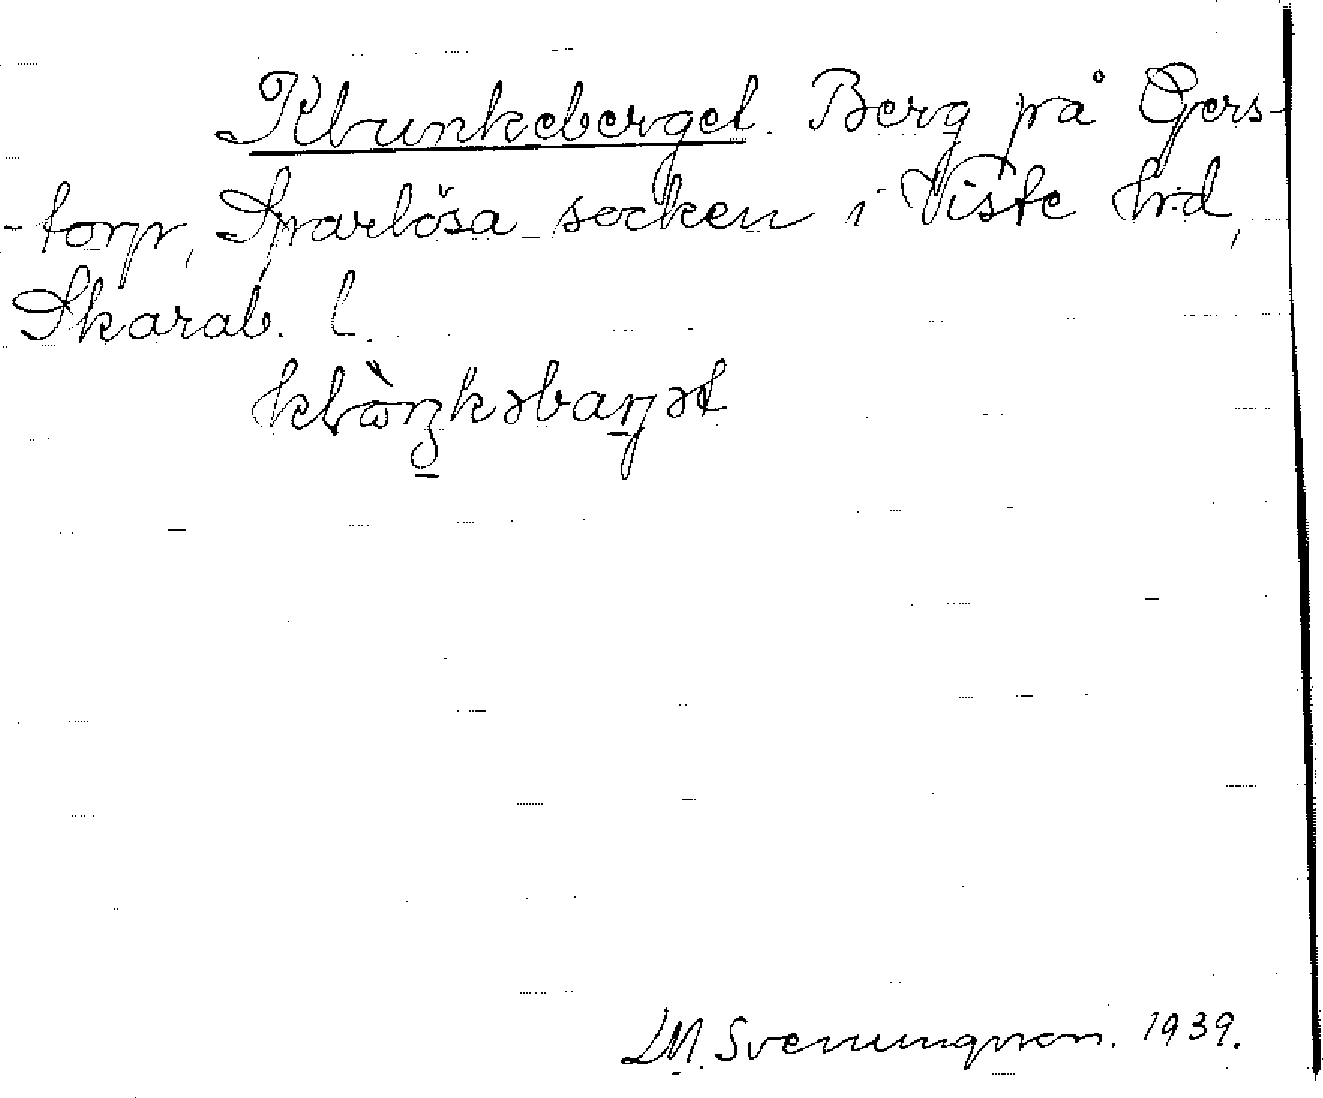 Klunkeberget. Berg på Gers-
-torp, Sparlösa socken i Viste hd,
Skarab. l.
LM. Svenungsson. 1939.